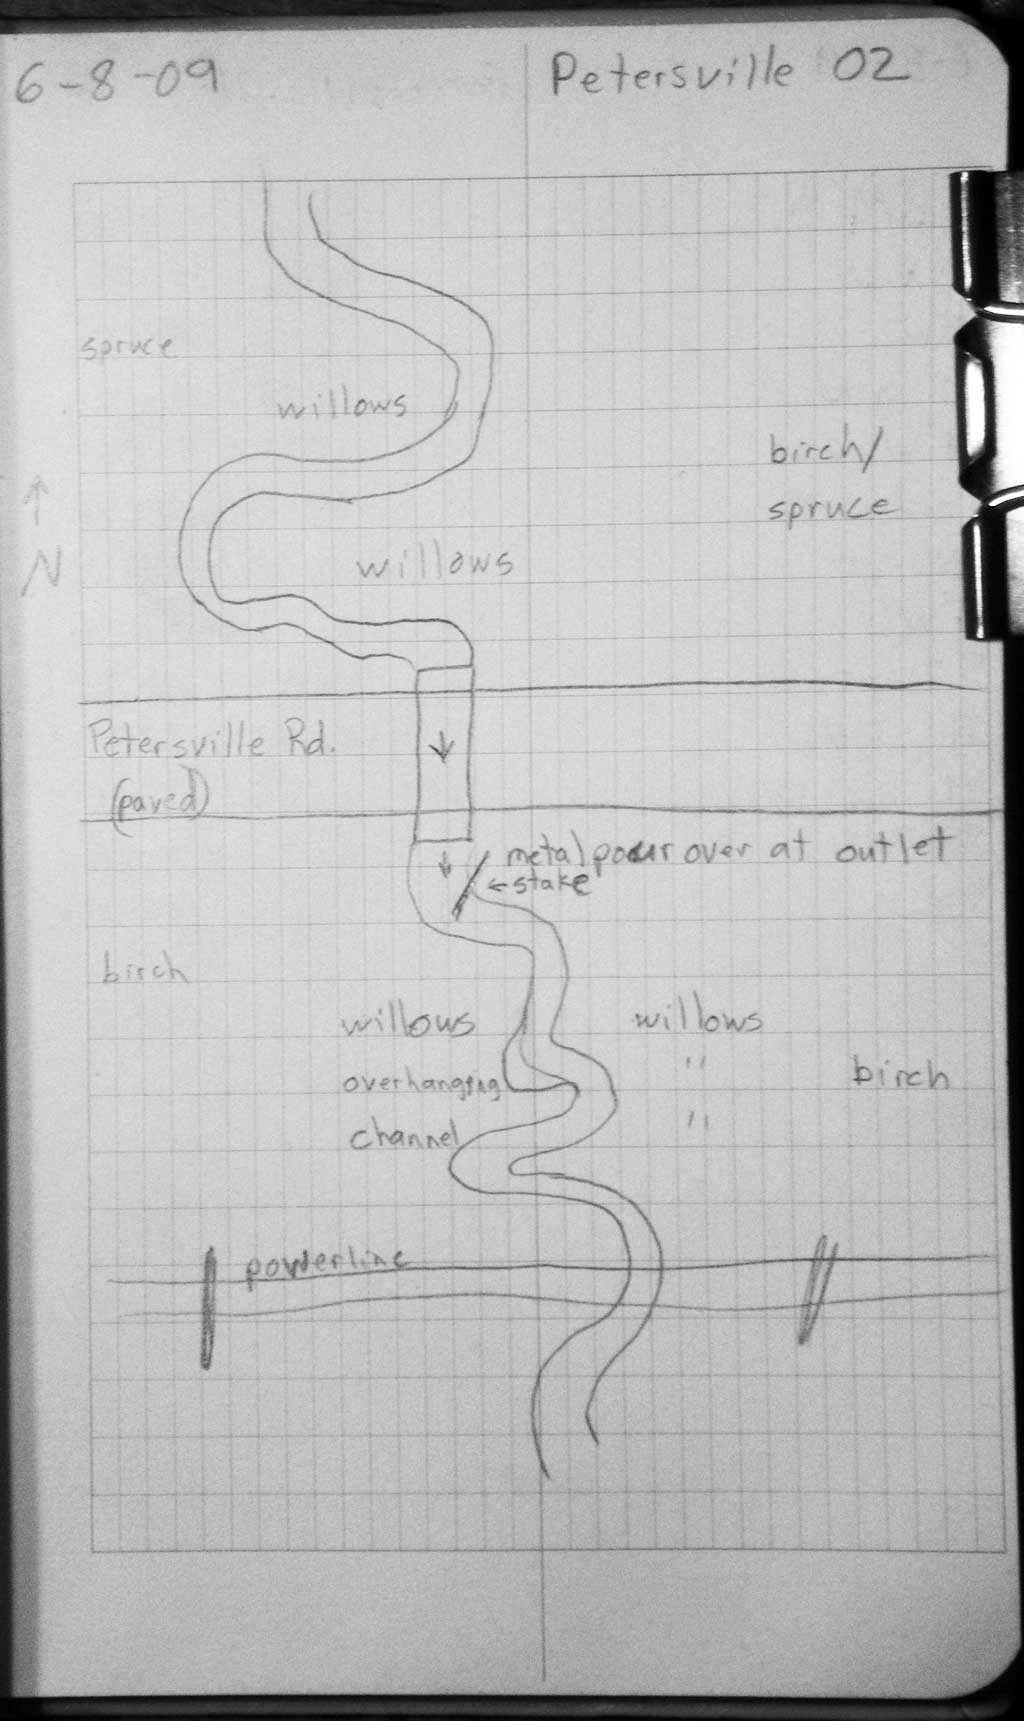 6-8-09
Petersville 02
spruce
willows
birch/
spruce
N
willows
Petersville Rd.
(paved)
metal pour over at outlet
←stake
birch
willows
overhanging
channel
willows
"
"
birch
powerline